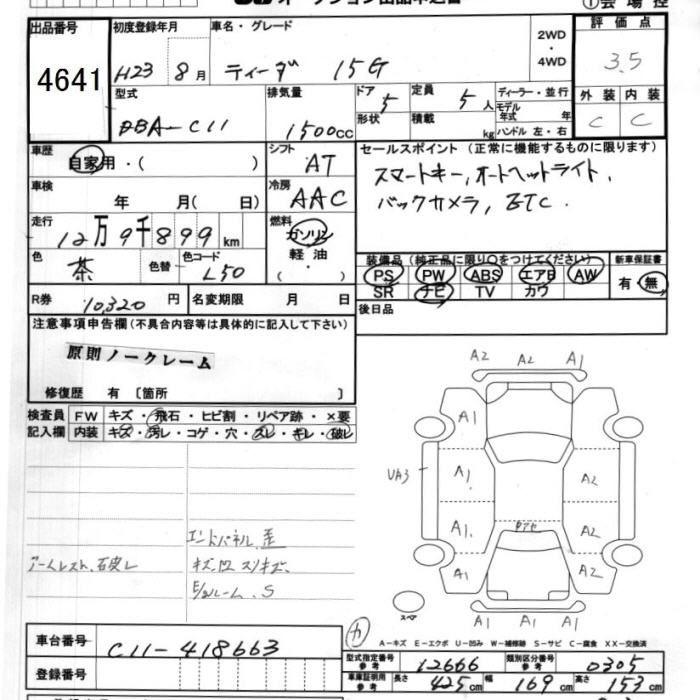 出品番号 4641
初度登録年月 H23 8月
車名・グレード ティーダ 15G
2WD・4WD
評価点 3.5
型式 DBA-C11
排気量 1500cc
ドア 形状 5
定員 5人
積載 kg
ディーラー・並行
モデル年式 年
ハンドル 左・右
外装 C 内装 C
車歴 自家用・( )
シフト AT
車検 年 月( 日)
冷房 AAC
セールスポイント (正常に機能するものに限ります)
スマートキー,オートヘットライト,
バックカメラ,ETC.
走行 12万9千899km
燃料 ガソリン 軽油・( )
色 茶 色替 色コード L50
装備品 (純正品に限り○をつけてください)
PS PW ABS エアB AW
SR ナビ TV カワ
新車保証書 有・無
R券 10,320円 名変期限 月 日
後日品
注意事項申告欄(不具合内容等は具体的に記入して下さい)
原則ノークレーム
修復歴 有 〔箇所 〕
検査員記入欄
FW キズ・飛石・ヒビ割・リペア跡・×要
内装 キズ・汚レ・コゲ・穴・スレ・キレ・破レ
A2 A2 A1
A1
A1 A2
UA3
A1. A2
A1 A2
A2 A1
スペア
エンドパネル.歪
アームレスト.破レ
キズ.凹 スリキズ.
S
車台番号 C11-418663
登録番号
A-キズ E-エクボ U-凹み W-補修跡 S-サビ C-腐食 XX-交換済
型式指定番号 参考 12666 類別区分番号 参考 0305
車庫証明用 参考 長さ 425cm 幅 169cm 高さ 153cm